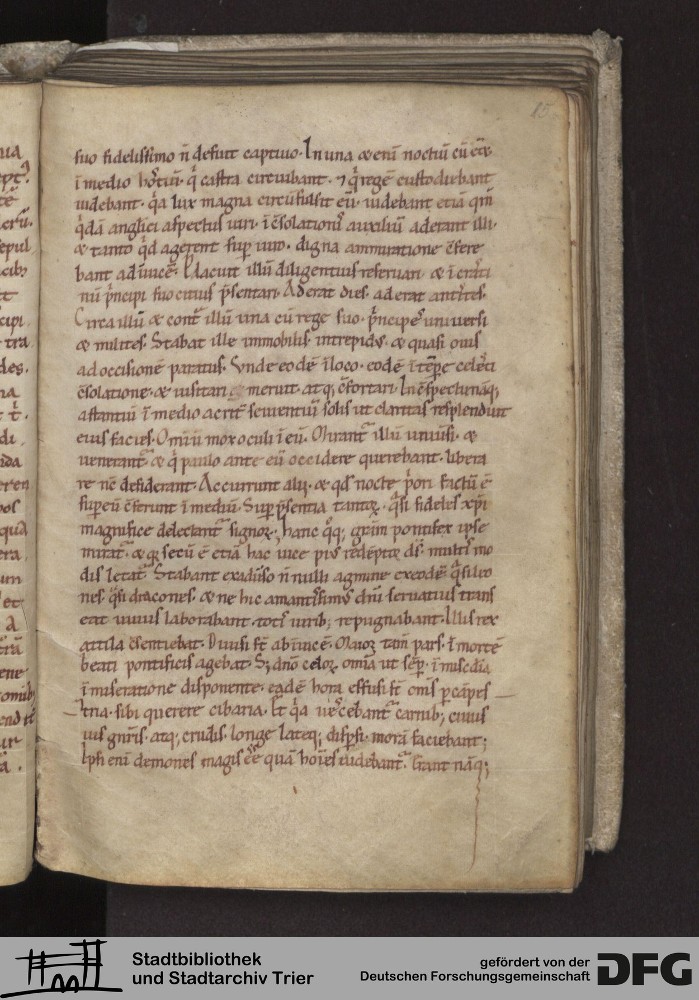 15
suo fidelissimo n̄ defuit captiuo. In una & enī noctiū cū
ī medio hostiū. q̄ castra circuibant. ⁊ q̄ regē custodiebant
uidebant. q̄a lux magna circūfulsit eū. uidebant etiā
q̄dā anglici aspectus uiri. ī c̄solationis auxiliū aderant illi.
& tanto q̄d agerent sup̄ uiro. digna ammiratione c̄fere
bant ad īuicē. Placuit illū diligentius reseruari. & ī
nū p̄ncipi suo citius p̄sentari. Aderat dies. aderat
Circa illū & cont̄ illū una cū rege suo. p̄ncipes uniuersi
& milites. Stabat ille immobilis intrepidus. & quasi ouis
ad occisionē paratus. Vnde eodē ī loco. eodē ī tēp̄e celesti
c̄solatione. & uisitari meruit. atq; c̄fortari. In c̄spectu nāq;
astantiū ī medio acrit̄ seuientiū. solis ut claritas resplenduit
eius facies. Om̄iū mox oculi ī eū. Mirant̄ illū uniuersi. &
uenerant̄. & q̄ paulo ante eū occidere querebant. libera
re nc̄ desiderant. Accurrunt alij. & qd̄ nocte p̄ori factū ē
sup̄ eū c̄ferunt ī mediū. Sup̄ p̄sentia tantoꝝ. q̄si fideles xp̄i
magnifice delectant̄ signoꝝ; hanc q̄q; grām pontifex ipse
mirat̄. & secū ē etiā hac uice pius redēptor ds̄. multis mo
dis letat̄. Stabant ex aduerso n̄ nulli agmine ex eodē q̄si leo
nes. q̄si dracones. & ne hic amantissimus dn̄i seruatius trans
eat uiuus laborabant. totis uirib; repugnabant. Illis rex
attila c̄sentiebat. Diuisi st̄ ab īuicē. Maior tam̄ pars. ī mortē
beati pontificis agebat. S; dn̄o celoꝝ. omīa ut semp̄. ī mis̄cdia
ī miseratione disponente. eadē hora effusi st̄ om̄s p̄ cāpes
tria. sibi querere cibaria. Et q̄a uescebant̄ carnib; cuius
uis gn̄ris. atq; crudis. longe lateq; disp̄si. morā faciebant;
Ipsi enī demones magis ēe quā hoīes uidebant̄. Erant nāq;
Stadtbibliothek
und Stadtarchiv Trier
gefördert von der
Deutschen Forschungsgemeinschaft
DFG